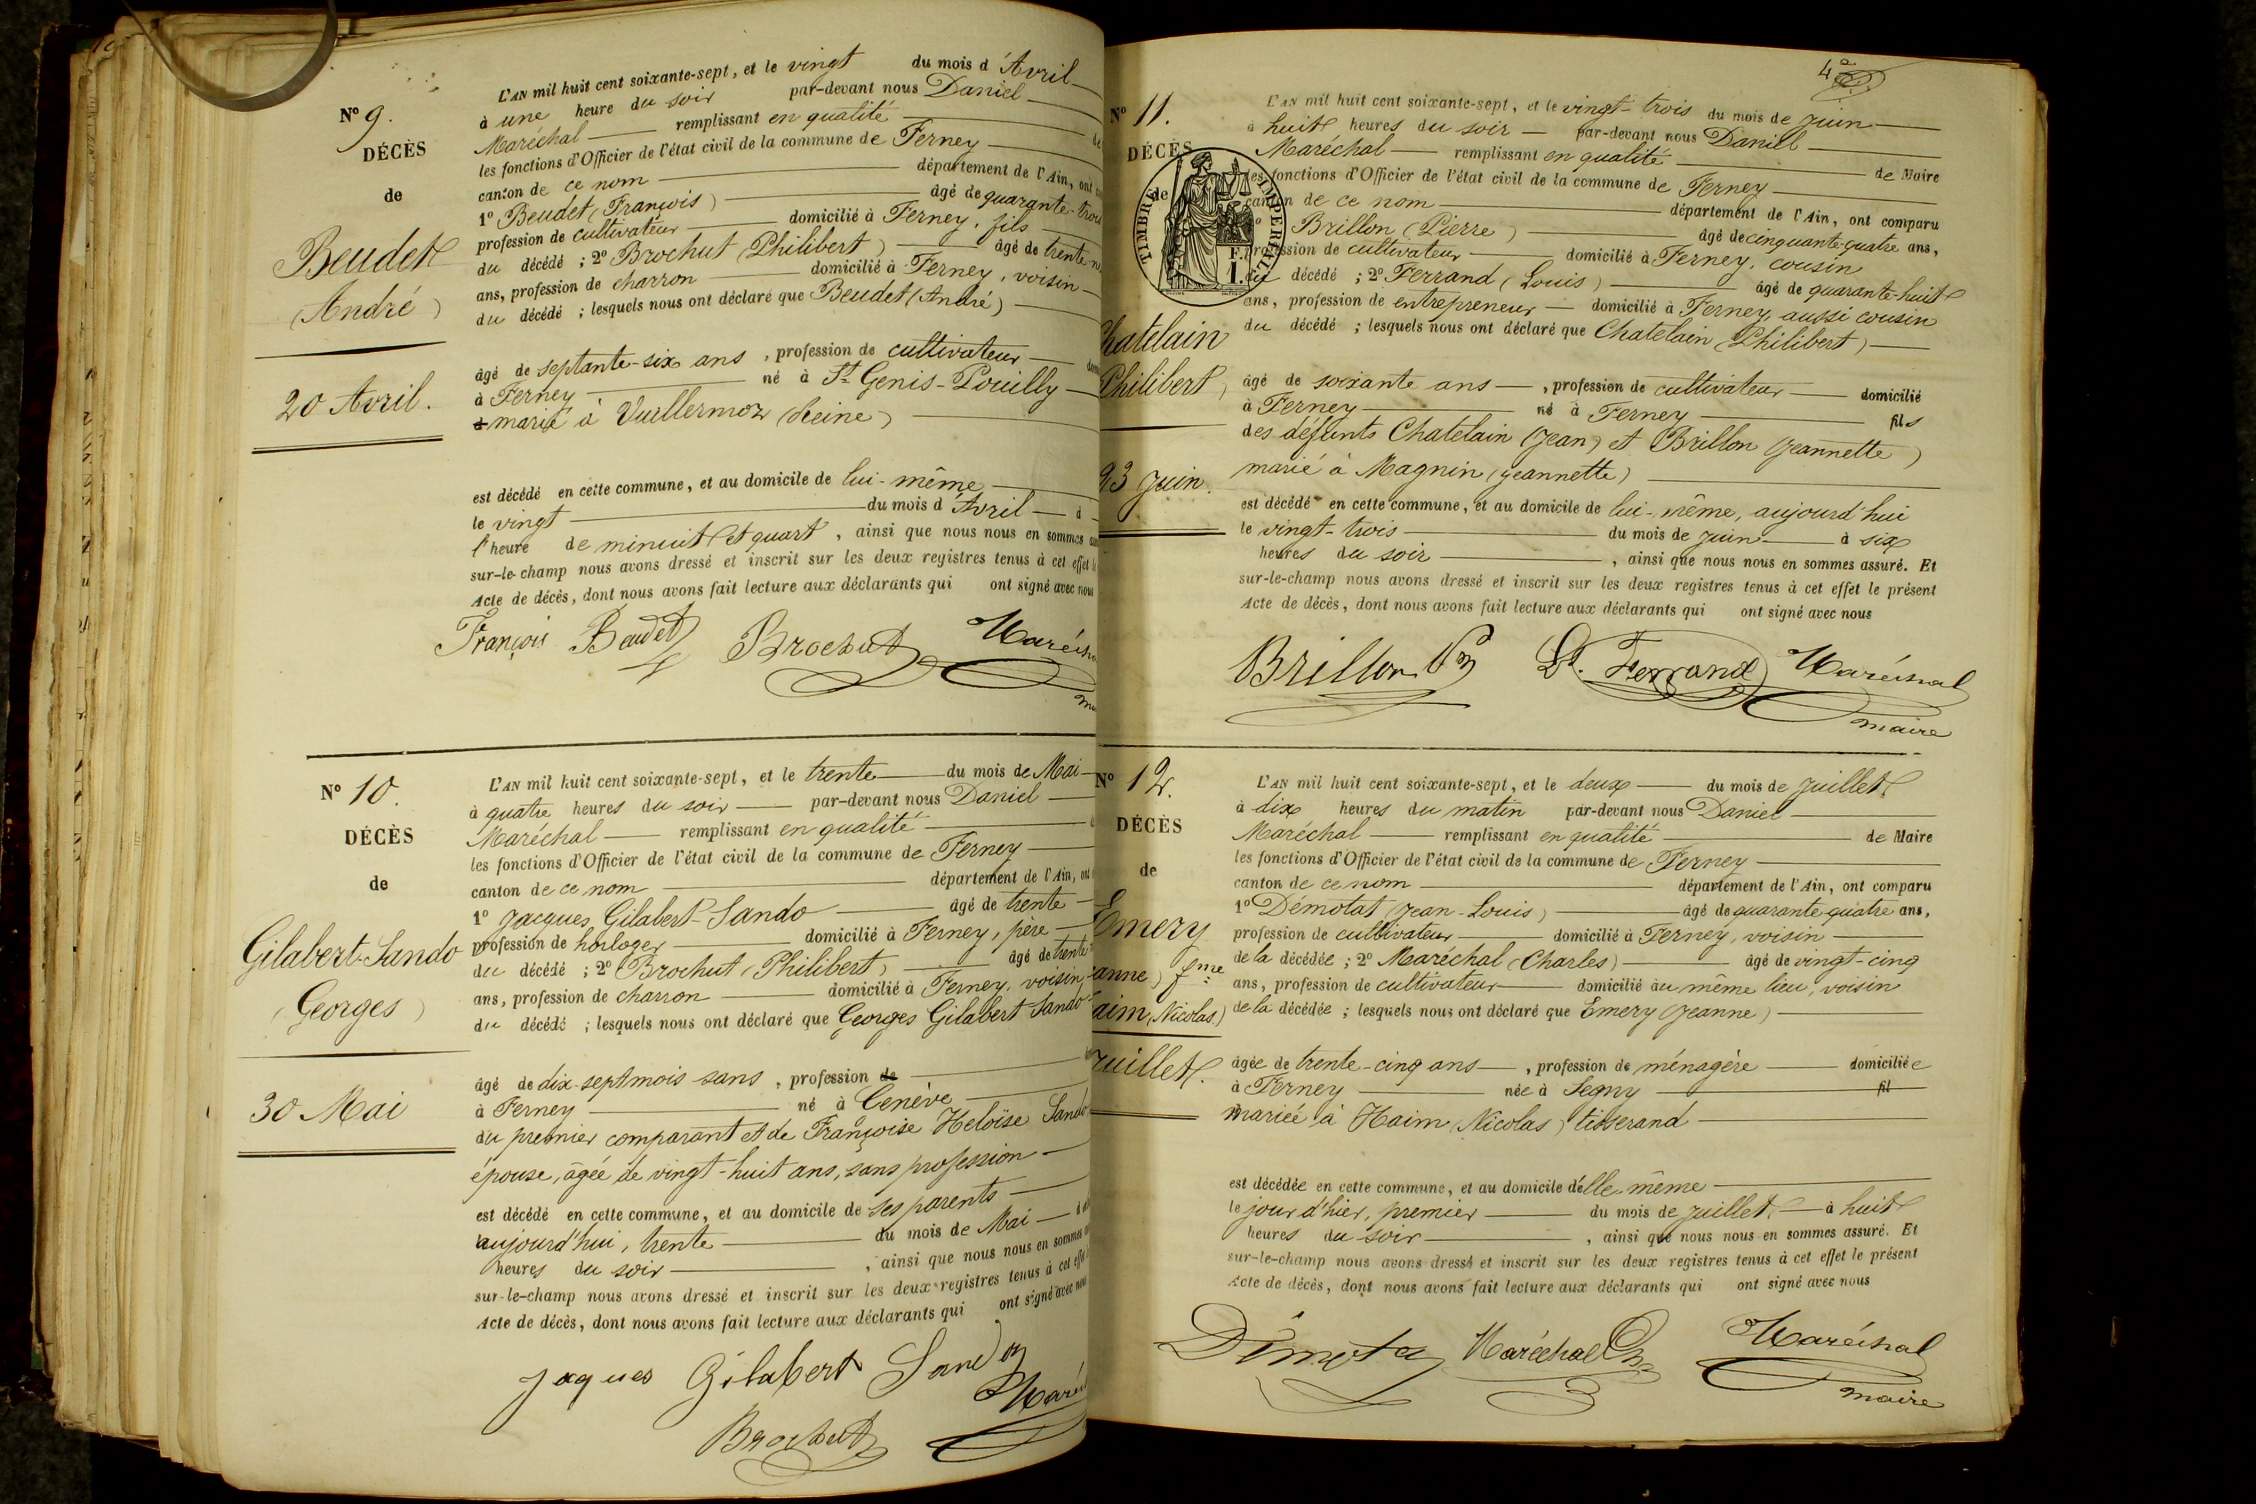 N° 9.
DÉCÈS
de
Beudet
(André)
20 Avril.
L'AN mil huit cent soixante-sept, et le vingt du mois d'Avril
à une heure du soir par-devant nous Daniel
Maréchal remplissant en qualité de
les fonctions d'Officier de l'état civil de la commune de Ferney
canton de ce nom département de l'Ain, ont
1° Beudet (François) âgé de quarante-trois
profession de cultivateur domicilié à Ferney, fils
du décédé ; 2° Brochut (Philibert) âgé de trente
ans, profession de charron domicilié à Ferney, voisin
du décédé ; lesquels nous ont déclaré que Beudet (André)
âgé de septante-six ans , profession de cultivateur
à Ferney né à St Genis-Pouilly
marié à Vuillermoz (Reine)
est décédé en cette commune, et au domicile de lui-même
le vingt du mois d'Avril à
l'heure de minuit et quart , ainsi que nous nous en sommes
sur-le-champ nous avons dressé et inscrit sur les deux registres tenus à cet effet le
Acte de décès, dont nous avons fait lecture aux déclarants qui ont signé avec nous
François Beudet Brochut Maréchal
N° 10.
DÉCÈS
de
Gilabert-Sando
(Georges)
30 Mai
L'AN mil huit cent soixante-sept, et le trente du mois de Mai
à quatre heures du soir par-devant nous Daniel
Maréchal remplissant en qualité
les fonctions d'Officier de l'état civil de la commune de Ferney
canton de ce nom département de l'Ain, ont
1° Jacques Gilabert-Sando âgé de trente
profession de horloger domicilié à Ferney, père
du décédé ; 2° Brochut (Philibert) âgé de trente
ans, profession de charron domicilié à Ferney, voisin
du décédé ; lesquels nous ont déclaré que Georges Gilabert Sando
âgé de dix-sept mois sans , profession de
à Ferney né à Genève
du premier comparant et de Françoise Heloïse Sando
épouse, âgée de vingt-huit ans, sans profession
est décédé en cette commune, et au domicile de ses parents
aujourd'hui, trente du mois de Mai à
heures du soir , ainsi que nous nous en sommes
sur-le-champ nous avons dressé et inscrit sur les deux registres tenus à cet effet
Acte de décès, dont nous avons fait lecture aux déclarants qui ont signé avec nous
Jaques Gilabert Sandoz
Brochut
4e
N° 11.
DÉCÈS
de
TIMBRE IMPERIAL
F.
1.
Chatelain
Philibert)
23 Juin.
L'AN mil huit cent soixante-sept, et le vingt-trois du mois de Juin
à huit heures du soir par-devant nous Daniel
Maréchal remplissant en qualité de Maire
les fonctions d'Officier de l'état civil de la commune de Ferney
canton de ce nom département de l'Ain, ont comparu
1° Brillon (Pierre) âgé de cinquante-quatre ans,
profession de cultivateur domicilié à Ferney, cousin
du décédé ; 2° Ferrand (Louis) âgé de quarante-huit
ans, profession de entrepreneur domicilié à Ferney, aussi cousin
du décédé ; lesquels nous ont déclaré que Chatelain (Philibert)
âgé de soixante ans , profession de cultivateur domicilié
à Ferney né à Ferney fils
des défunts Chatelain (Jean) et Brillon (Jeannette)
marié à Magnin (Jeannette)
est décédé en cette commune, et au domicile de lui-même, aujourd'hui
le vingt-trois du mois de Juin à six
heures du soir , ainsi que nous nous en sommes assuré. Et
sur-le-champ nous avons dressé et inscrit sur les deux registres tenus à cet effet le présent
Acte de décès, dont nous avons fait lecture aux déclarants qui ont signé avec nous
Brillon Ls. Ferrand Maréchal
maire
N° 12.
DÉCÈS
de
Emery
anne) fme
aim (Nicolas)
Juillet.
L'AN mil huit cent soixante-sept, et le deux du mois de Juillet
à dix heures du matin par-devant nous Daniel
Maréchal remplissant en qualité de Maire
les fonctions d'Officier de l'état civil de la commune de Ferney
canton de ce nom département de l'Ain, ont comparu
1° Démotat (Jean-Louis) âgé de quarante quatre ans,
profession de cultivateur domicilié à Ferney, voisin
de la décédée ; 2° Maréchal (Charles) âgé de vingt-cinq
ans, profession de cultivateur domicilié au même lieu, voisin
de la décédée ; lesquels nous ont déclaré que Emery (Jeanne)
âgée de trente-cinq ans , profession de ménagère domiciliée
à Ferney née à Segny fil
mariée à Haim (Nicolas) tisserand
est décédée en cette commune, et au domicile d'elle-même
le jour d'hier, premier du mois de Juillet, à huit
heures du soir , ainsi que nous nous en sommes assuré. Et
sur-le-champ nous avons dressé et inscrit sur les deux registres tenus à cet effet le présent
Acte de décès, dont nous avons fait lecture aux déclarants qui ont signé avec nous
Maréchal Maréchal
maire